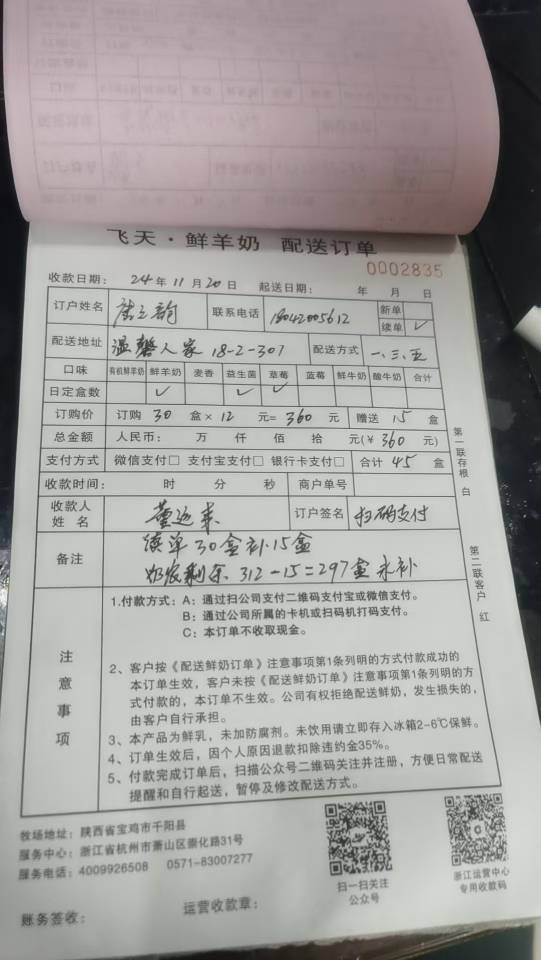 飞天·鲜羊奶 配送订单
0002835
收款日期： 24年11月20日 起送日期： 年 月 日
订户姓名 联系电话 18042005612 新单
续单 ✓
配送地址 温馨人家 18-2-307 配送方式 一、三、五
口味 有机鲜羊奶 鲜羊奶 麦香 益生菌 草莓 蓝莓 鲜牛奶 酸牛奶 合计
日定盒数 ✓ ✓ ✓
订购价 订购 30 盒× 12 元= 360 元 赠送 15 盒
总金额 人民币： 万 仟 佰 拾 元(¥ 360 元)
支付方式 微信支付□ 支付宝支付□ 银行卡支付□ 合计 45 盒
收款时间： 时 分 秒 商户单号
收款人
姓 名 董运来 订户签名 扫码支付
备注 续单30盒补15盒
奶农剩余 312-15=297盒未补
注意事项
1.付款方式：A：通过扫公司支付二维码支付宝或微信支付。
B：通过公司所属的卡机或扫码机打码支付。
C：本订单不收取现金。
2、客户按《配送鲜奶订单》注意事项第1条列明的方式付款成功的
本订单生效，客户未按《配送鲜奶订单》注意事项第1条列明的方
式付款的，本订单不生效。公司有权拒绝配送鲜奶，发生损失的，
由客户自行承担。
3、本产品为鲜乳，未加防腐剂。未饮用请立即存入冰箱2-6℃保鲜。
4、订单生效后，因个人原因退款扣除违约金35%。
5、付款完成订单后，扫描公众号二维码关注并注册，方便日常配送
提醒和自行起送，暂停及修改配送方式。
第一联存根 白
第二联客户 红
牧场地址：陕西省宝鸡市千阳县
服务中心：浙江省杭州市萧山区崇化路31号
服务电话：4009926508 0571-83007277
扫一扫关注
公众号
浙江运营中心
专用收款码
账务签收： 运营收款章：